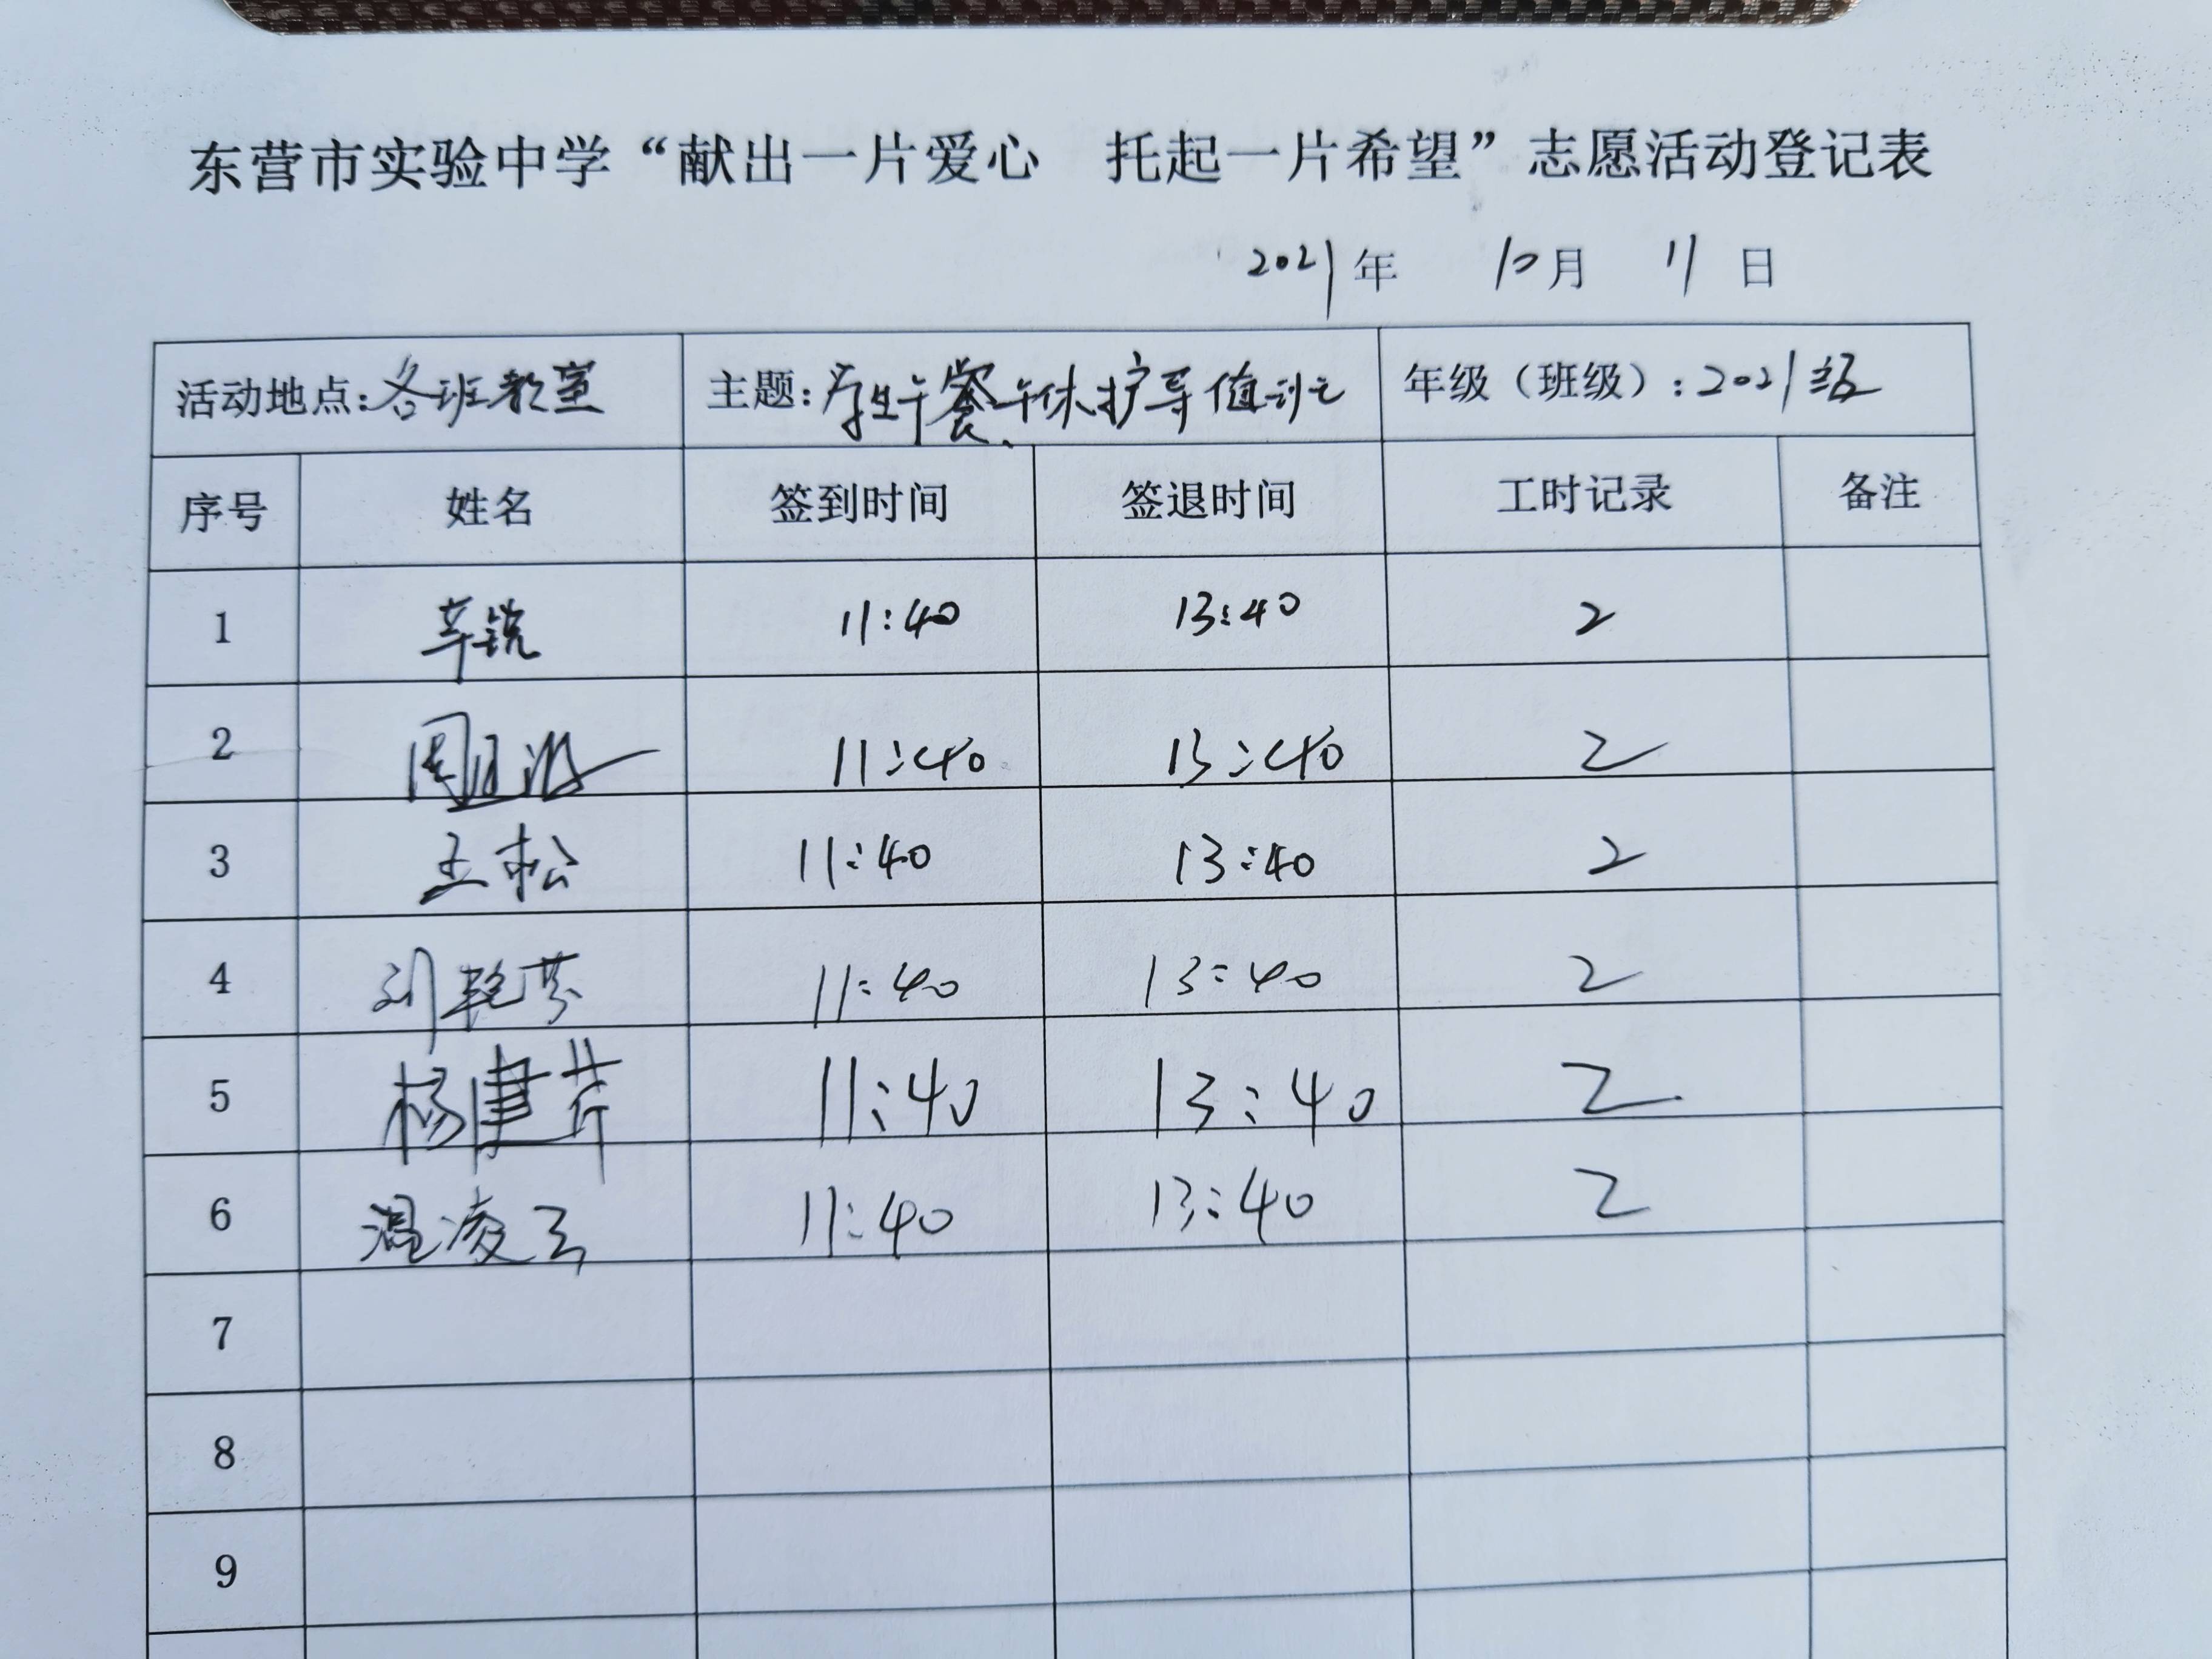 东营市实验中学“献出一片爱心 托起一片希望”志愿活动登记表
2021年 10月 11日
活动地点:各班教室 主题:学生午餐、午休护导值班 年级（班级）:2021级
序号 姓名 签到时间 签退时间 工时记录 备注
1 辛锐 11:40 13:40 2
2 周 11:40 13:40 2
3 王松 11:40 13:40 2
4 刘艳芬 11:40 13:40 2
5 杨建芹 11:40 13:40 2
6 温凌云 11:40 13:40 2
7
8
9